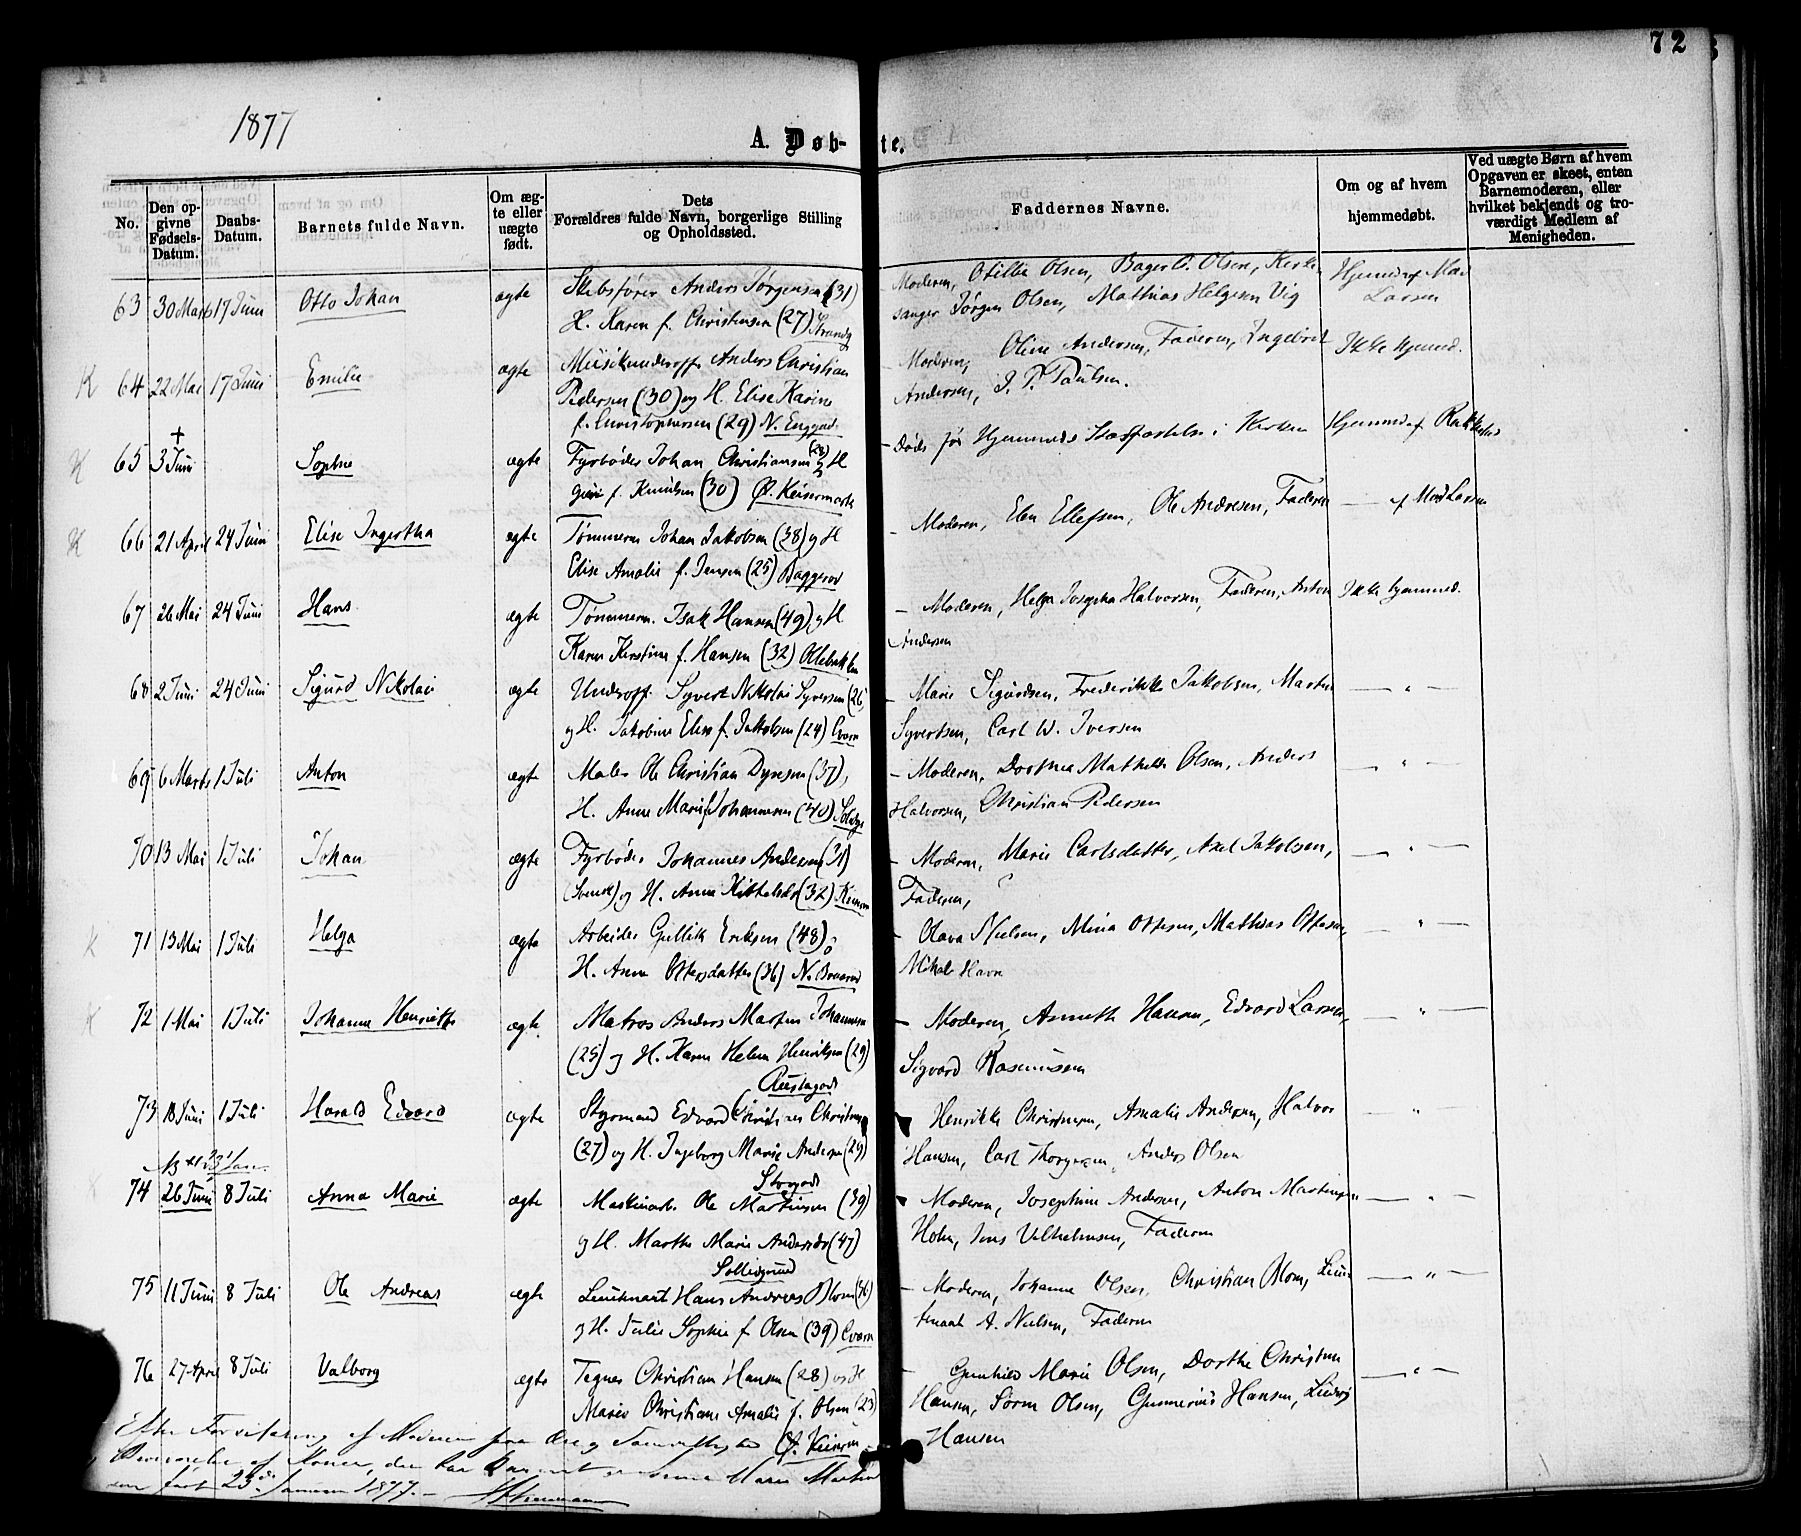 72
1877
A. Døb-te.
No.
Den opgivne Fødsels-Datum.
Daabs-Datum.
Barnets fulde Navn.
Om ægte eller uægte født.
Dets Forældres fulde Navn, borgerlige Stilling og Opholdssted.
Faddernes Navne.
Om og af hvem hjemmedøbt.
Ved uægte Børn af hvem Opgaven er skeet, enten Barnemoderen, eller hvilket bekjendt og troværdigt Medlem af Menigheden.
63 30 Marts 17 Juni Otto Johan ægte Skibsfører Anders Jørgensen (31) Moderen, Otillie Olsen, Bager O. Olsen, Kirke Hjemmed af Mad
H. Karen f. Christensen (27) Strandg sanger Jørgen Olsen, Mathias Helgesen Vig Larsen
K 64 22 Mai 17 Juni Emilie ægte Musikunderoff Anders Christian Moderen, Oline Andersen, Faderen, Ingebret Ikke hjemmed.
Pedersen (30) og H. Elise Karine Andersen, J. P. Paulsen.
f. Christophersen (29) N. Enggad
K 65 + 3 Juni Sophie ægte Fyrbøder Johan Christiansen (28) og H Døde før Hjemmeds Stadfæstelse i Kirken Hjemmed af
f. Knudsen (30) Ø. Keisermark
K 66 21 April 24 Juni Elise Ingertha ægte Tømmerm Johan Jakobsen (38) og H Moderen, Elen Ellefsen, Ole Andresen, Faderen — af Mad Larsen
Elise Amalie f. Jensen (25) Baggerød
67 26 Mai 24 Juni Hans ægte Tømmerm. Isak Hansen (49) og H Moderen, Helga Josepha Halvorsen, Faderen, Anton Ikke hjemmed.
Karen Kirstine f. Hansen (32) Ollebakken Andersen
68 2 Juni 24 Juni Sigurd Nikolai ægte Underoff. Syvert Nikolai Syversen (26) Marie Sigurdsen, Frederikke Jakobsen, Martin — " —
og H. Jakobine Elise f. Jakobsen (24) Syvertsen, Carl W. Iversen
69 6 Marts 1 Juli Anton ægte Maler Ole Christian Dyresen (37), Moderen, Dorthea Mathilde Olsen, Anders — " —
H. Anne Marie Johannesen (40) Halvorsen, Christian Pedersen
70 13 Mai 1 Juli Johan ægte Fyrbøder Johannes Andersen (31) Moderen, Marie Carlsdatter, Axel Jakobsen, — " —
(Svensk) og H. Anna Kittelsdr (32) Faderen,
K 71 13 Mai 1 Juli Helga ægte Arbeider Gullik Eriksen (48) og Olava Nielsen, Mina Ottesen, Mathias Ottesen, — " —
H. Anne Ottersdatter (36) N. Braarød Mikal Havn
K 72 1 Mai 1 Juli Johanne Henriette ægte. Matros Anders Martin Johannesen Moderen, Annette Hansen, Edvard Larsen, — " —
(25) og H. Karen Helene Henriksen (29) Sigvard Rasmussen
Rustagad
73 18 Juni 1 Juli Harald Edvard ægte Styrmand Edvard Christian Christensen Henrikke Christensen, Amalie Andersen, Halvor "
(27) og H. Ingeborg Marie Andersen (29) Hansen, Carl Thorgersen, Anders Olsen
NB 23 Jan. Storgad
K 74 26 Juni 8 Juli Anna Marie ægte Maskinarb. Ole Martinsen (39) Moderen, Josephine Andersen, Anton Martinsen — " —
og H. Marthe Marie Andersdr (47) Holm, Jens Vilhelmsen, Faderen
75 11 Juni 8 Juli Ole Andreas ægte Lieutnant Hans Andreas Blom (36) Moderen, Johanne Olsen, Christian Blom, Lieu- — " —
og H. Julie Sophie f. Olsen (39) tenant A. Nielsen, Faderen
76 27 April 8 Juli Valborg ægte Tegner Christian Hansen (28) og H Gunhild Marie Olsen, Dorthe Christine — " —
Maren Christiane Amalie f. Olsen (23) Hansen, Søren Olsen, Gunnerius Hansen, Ludvig
Hansen
Efter Forsikring af Moderen
af
født 23de Januar 1877. —